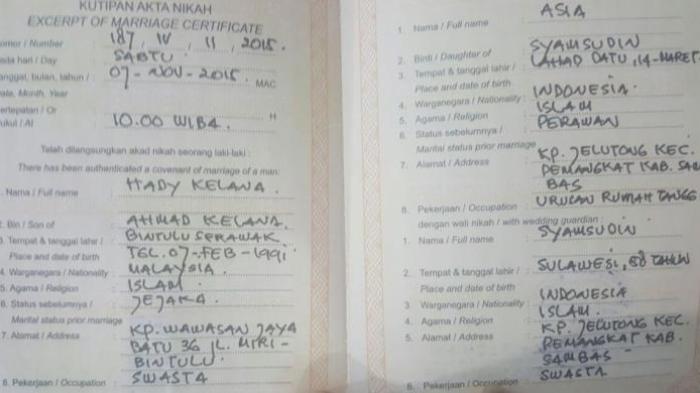 KUTIPAN AKTA NIKAH
EXCERPT OF MARRIAGE CERTIFICATE
omor / Number 187, IV, 11, 2015.
ada hari / Day SABTU
anggal, bulan, tahun / 07-NOV-2015. MAC
ate, Month, Year
ertepatan / Or H
ukul / At 10.00 WIBA.
Telah dilangsungkan akad nikah seorang laki-laki :
There has been authenticated a covenant of marriage of a man:
. Nama / Full name HADY KELANA.
2. Bin / Son of AHMAD KELANA.
3. Tempat & tanggal lahir / BINTULU SERAWAK
Place and date of birth TGL.07-FEB-1991
4. Warganegara / Nationality : MALAYSIA.
5. Agama / Religion ISLAM.
6. Status sebelumnya / JEJAKA.
Marital status prior marriage
7. Alamat / Address KP. WAWASAN JAYA
BATU 36 JL. MIRI-
BINTULU
8. Pekerjaan / Occupation : SWASTA
1. Nama / Full name ASIA
2. Binti / Daughter of SYAMSUDIN
3. Tempat & tanggal lahir : LAHAD DATU, 14-MARET-
Place and date of birth
4. Warganegara / Nationality : INDONESIA.
5. Agama / Religion ISLAM
6. Status sebelumnya / PERAWAN
Marital status prior marriage
7. Alamat / Address KP. JELUTONG KEC.
PEMANGKAT KAB. SAM
BAS
8. Pekerjaan / Occupation : URUSAN RUMAH TANGG
dengan wali nikah / with wedding guardian :
1. Nama / Full name SYAMSUDIN
2. Tempat & tanggal lahir / SULAWESI, 58 TAHUN
Place and date of birth
3. Warganegara / Nationality : INDONESIA
4. Agama / Religion ISLAM.
5. Alamat / Address KP. JELUTONG KEC.
PEMANGKAT KAB.
SAMBAS
6. Pekerjaan / Occupation : SWASTA